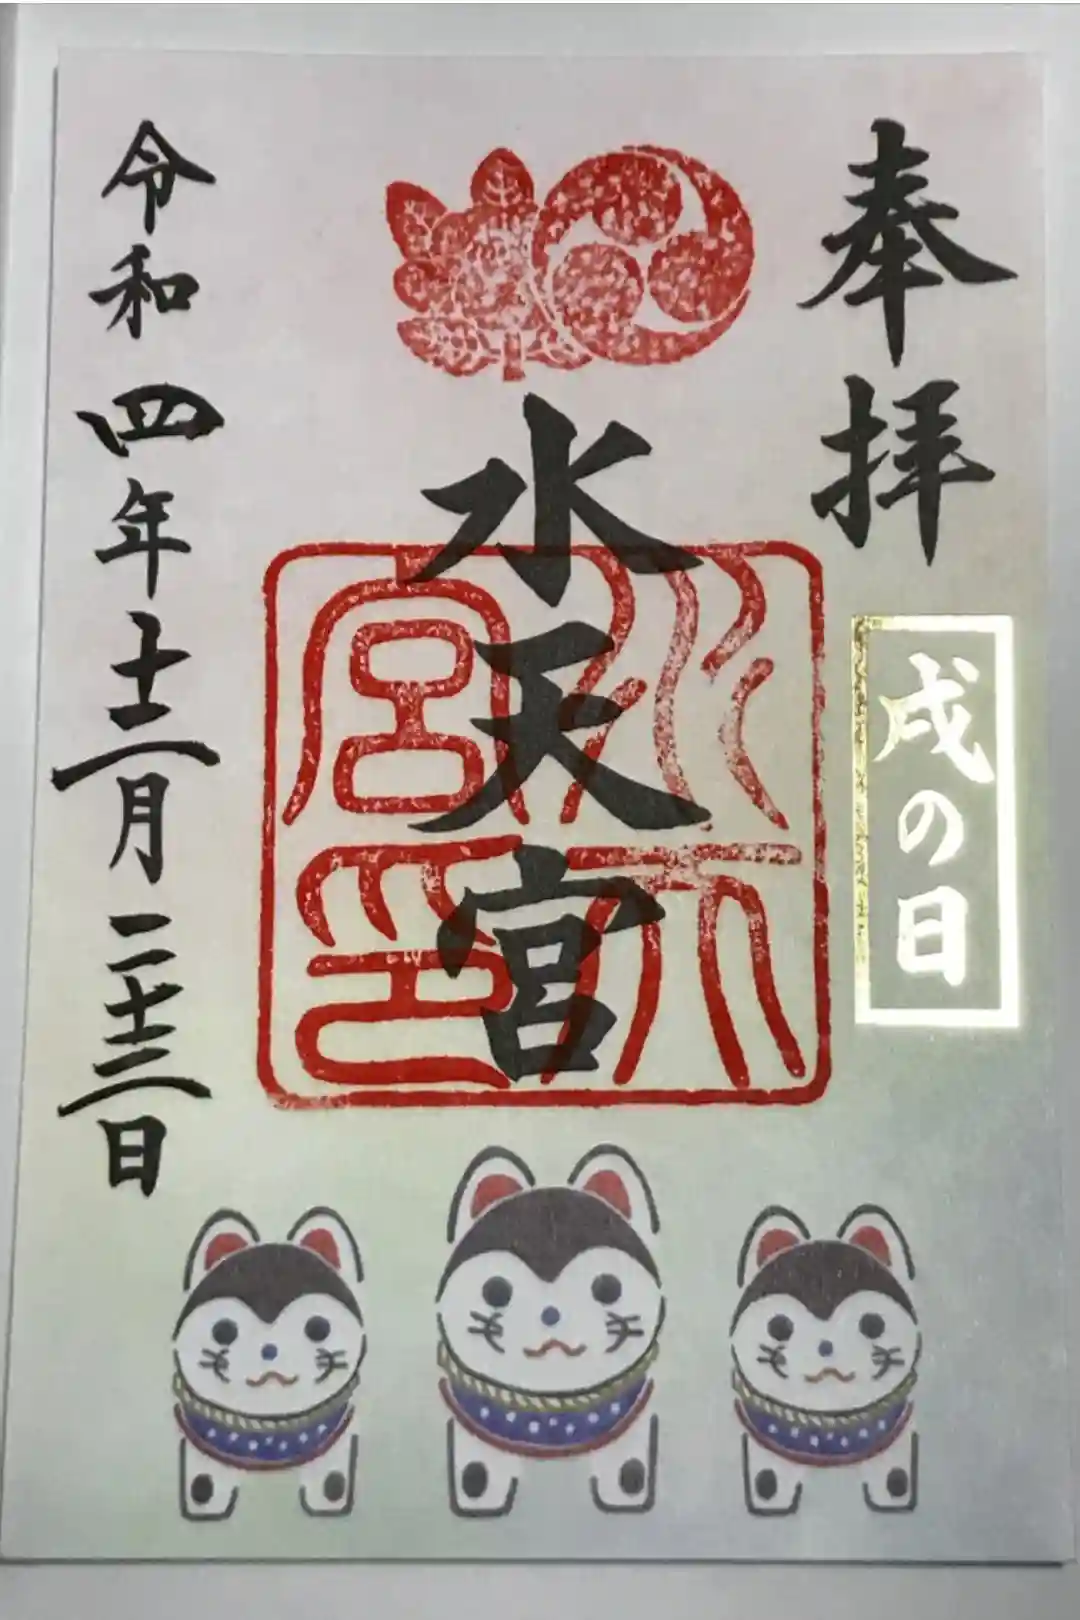 奉拝
戌の日
水天宮
水天宮印
令和四年十二月二十三日